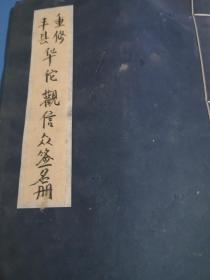 重修
丰县华佗觀信众签名册